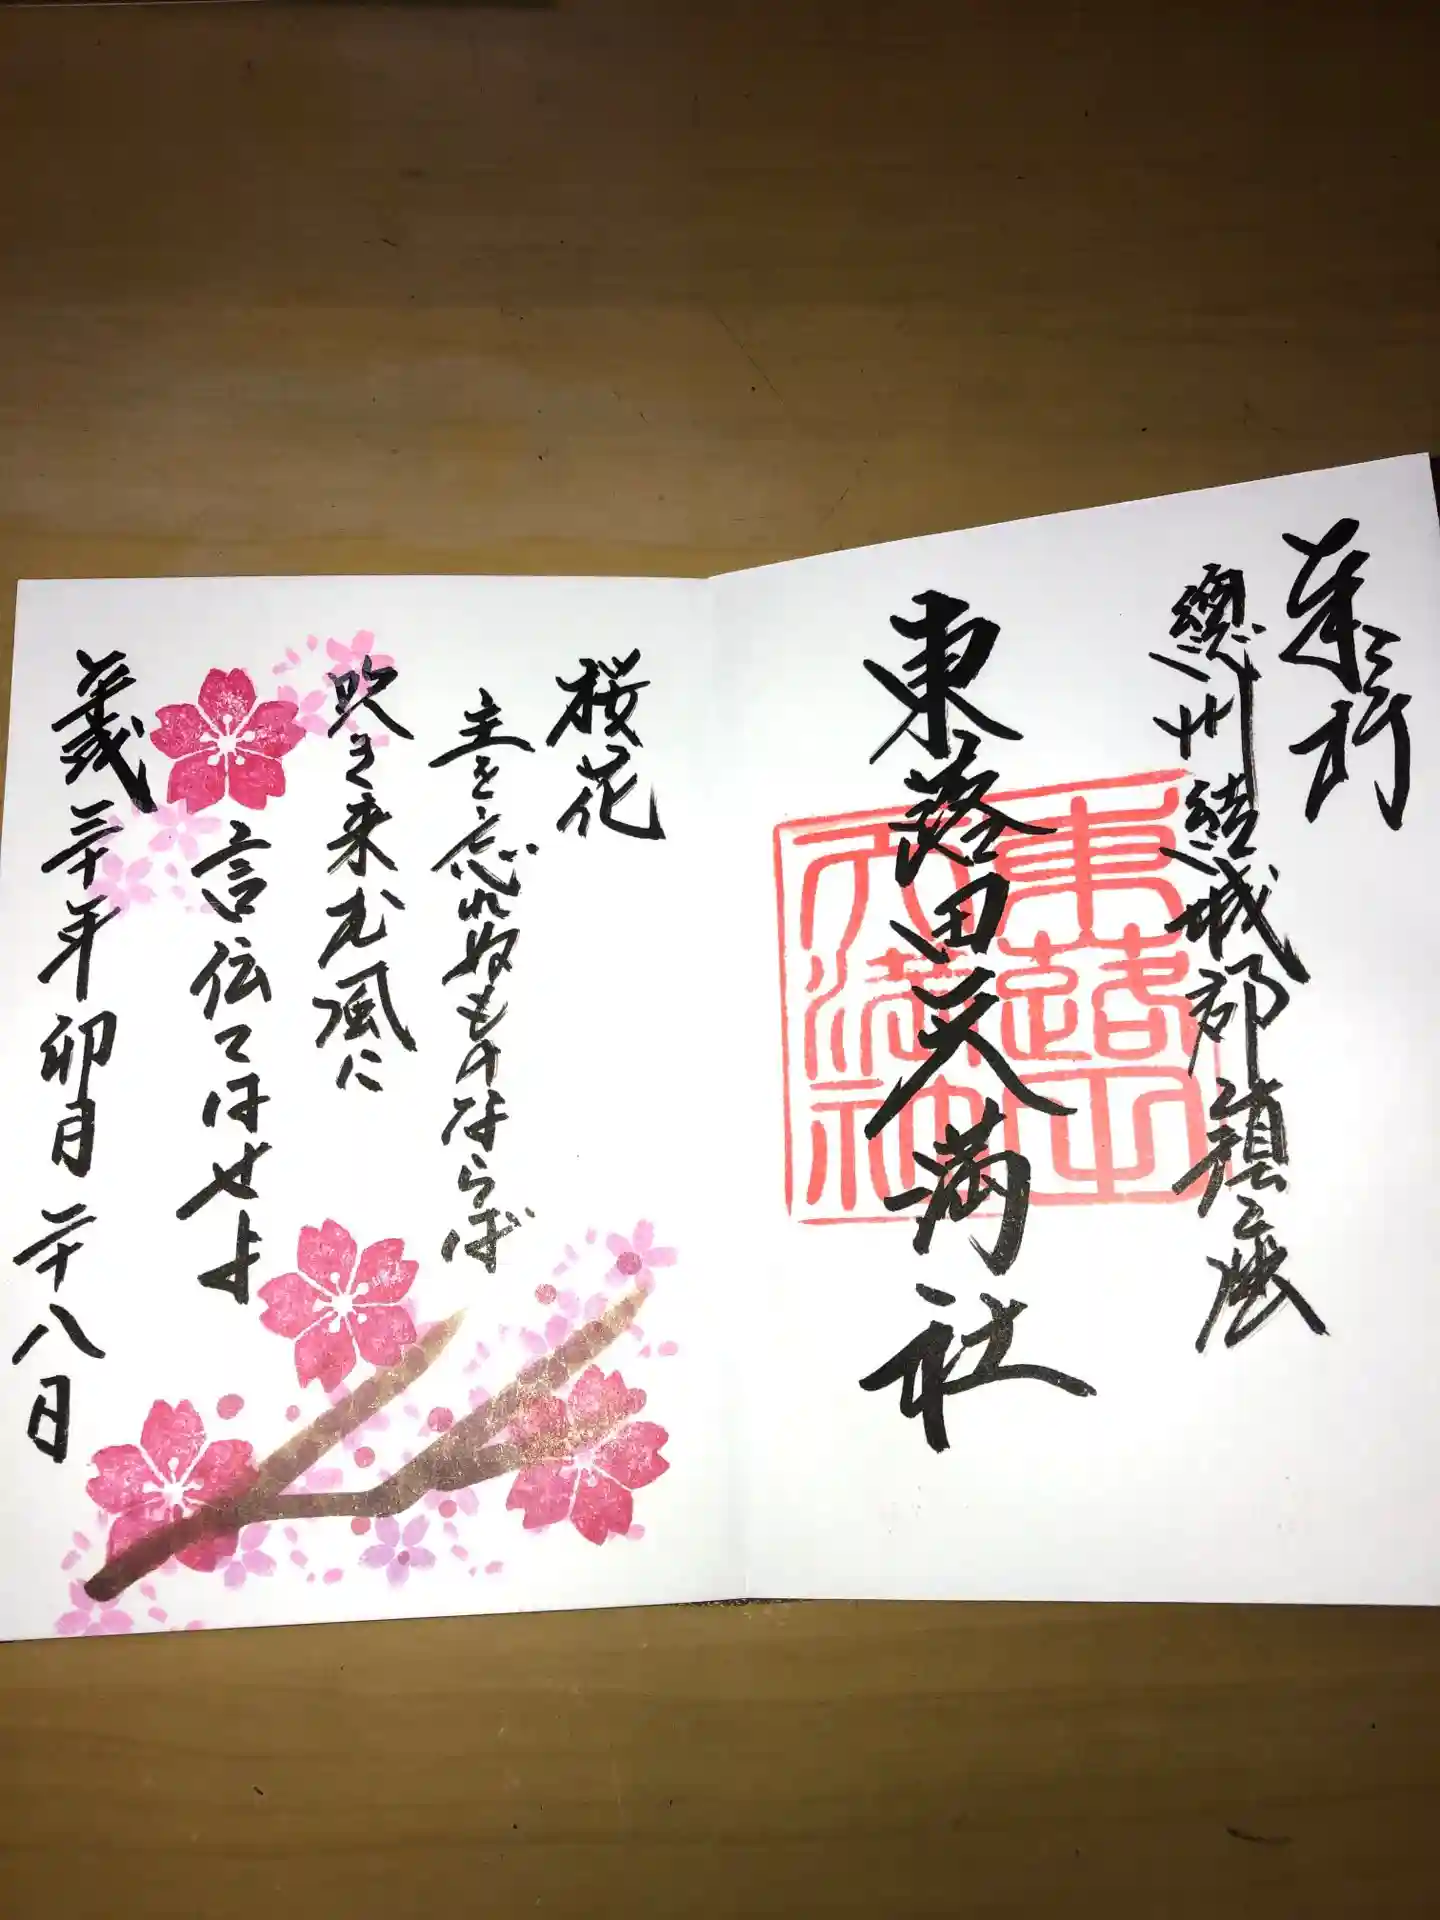 奉拝
總州結城郡鎮之処
東蕗田天満社
東蕗田
天満社
桜花
主を忘れぬものならば
吹き来む風に
言伝てはせよ
平成三十年卯月二十八日